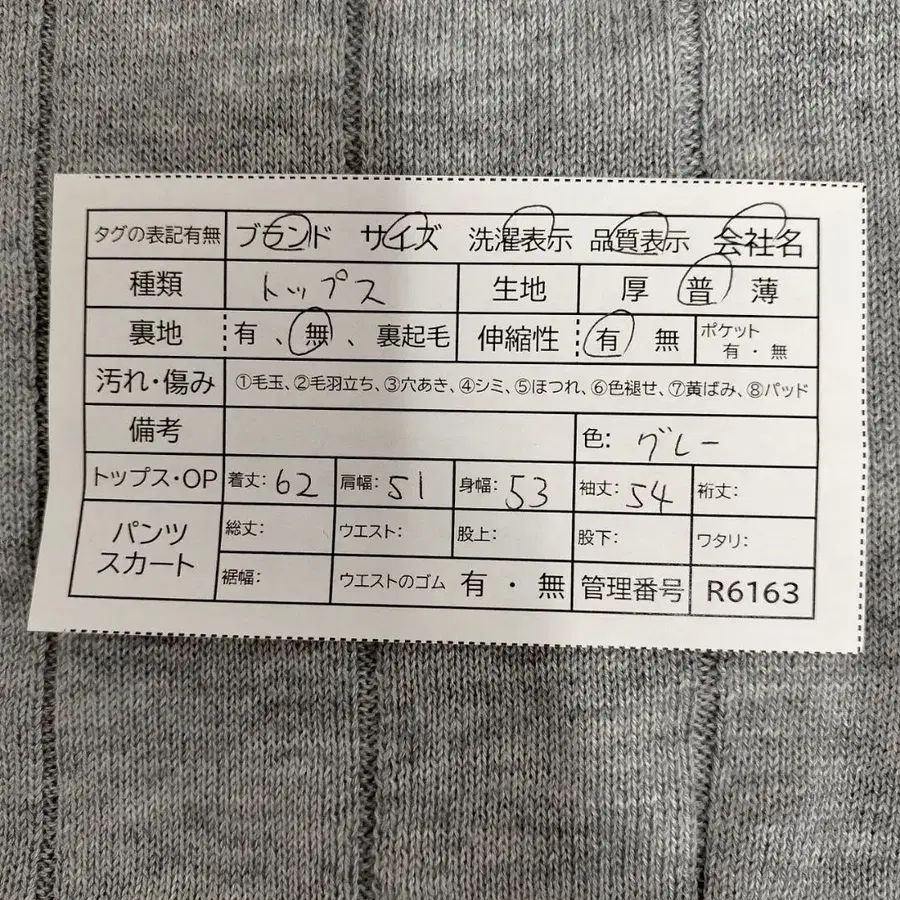 タグの表記有無 ブランド サイズ 洗濯表示 品質表示 会社名
種類 トップス 生地 厚 普 薄
裏地 有 、無 、裏起毛 伸縮性 有 無 ポケット 有・無
汚れ・傷み ①毛玉、②毛羽立ち、③穴あき、④シミ、⑤ほつれ、⑥色褪せ、⑦黄ばみ、⑧パッド
備考 色: グレー
トップス・OP 着丈: 62 肩幅: 51 身幅: 53 袖丈: 54 裄丈:
パンツ スカート 総丈: ウエスト: 股上: 股下: ワタリ:
裾幅: ウエストのゴム 有・無 管理番号 R6163